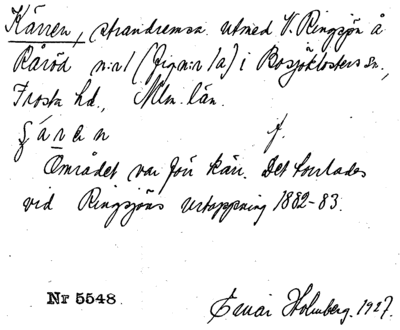 Kärren, strandremsa utmed V. Ringsjön å
Råröd n:r 1 (fig n:r 1a) i Bosjökloster sn.,
Frosta hd., Mlm. län.
ʒáran f.
Området var förr kärr. Det torrlades
vid Ringsjöns urtappning 1882-83.
Nr 5548 Einar Holmberg. 1927.